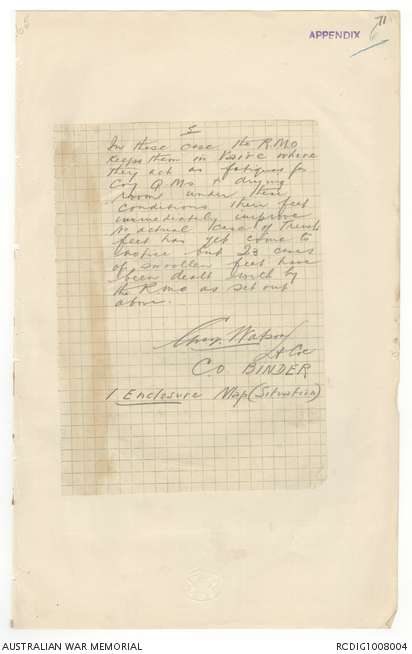 APPENDIX
71
In these case the R.M.O
keeps them in where
they act as fatigues for
Coy Q Ms & drying
room under these
conditions their feet
immediately improve
No actual case of Trench
feet has yet come to
notice but 23 cases
of swollen feet have
been dealt with by
the R M O as set out
above.
Watson
Lt Col
CO BINDER
1 Enclosure Map (Situation)
AUSTRALIAN WAR MEMORIAL
RCDIG1008004